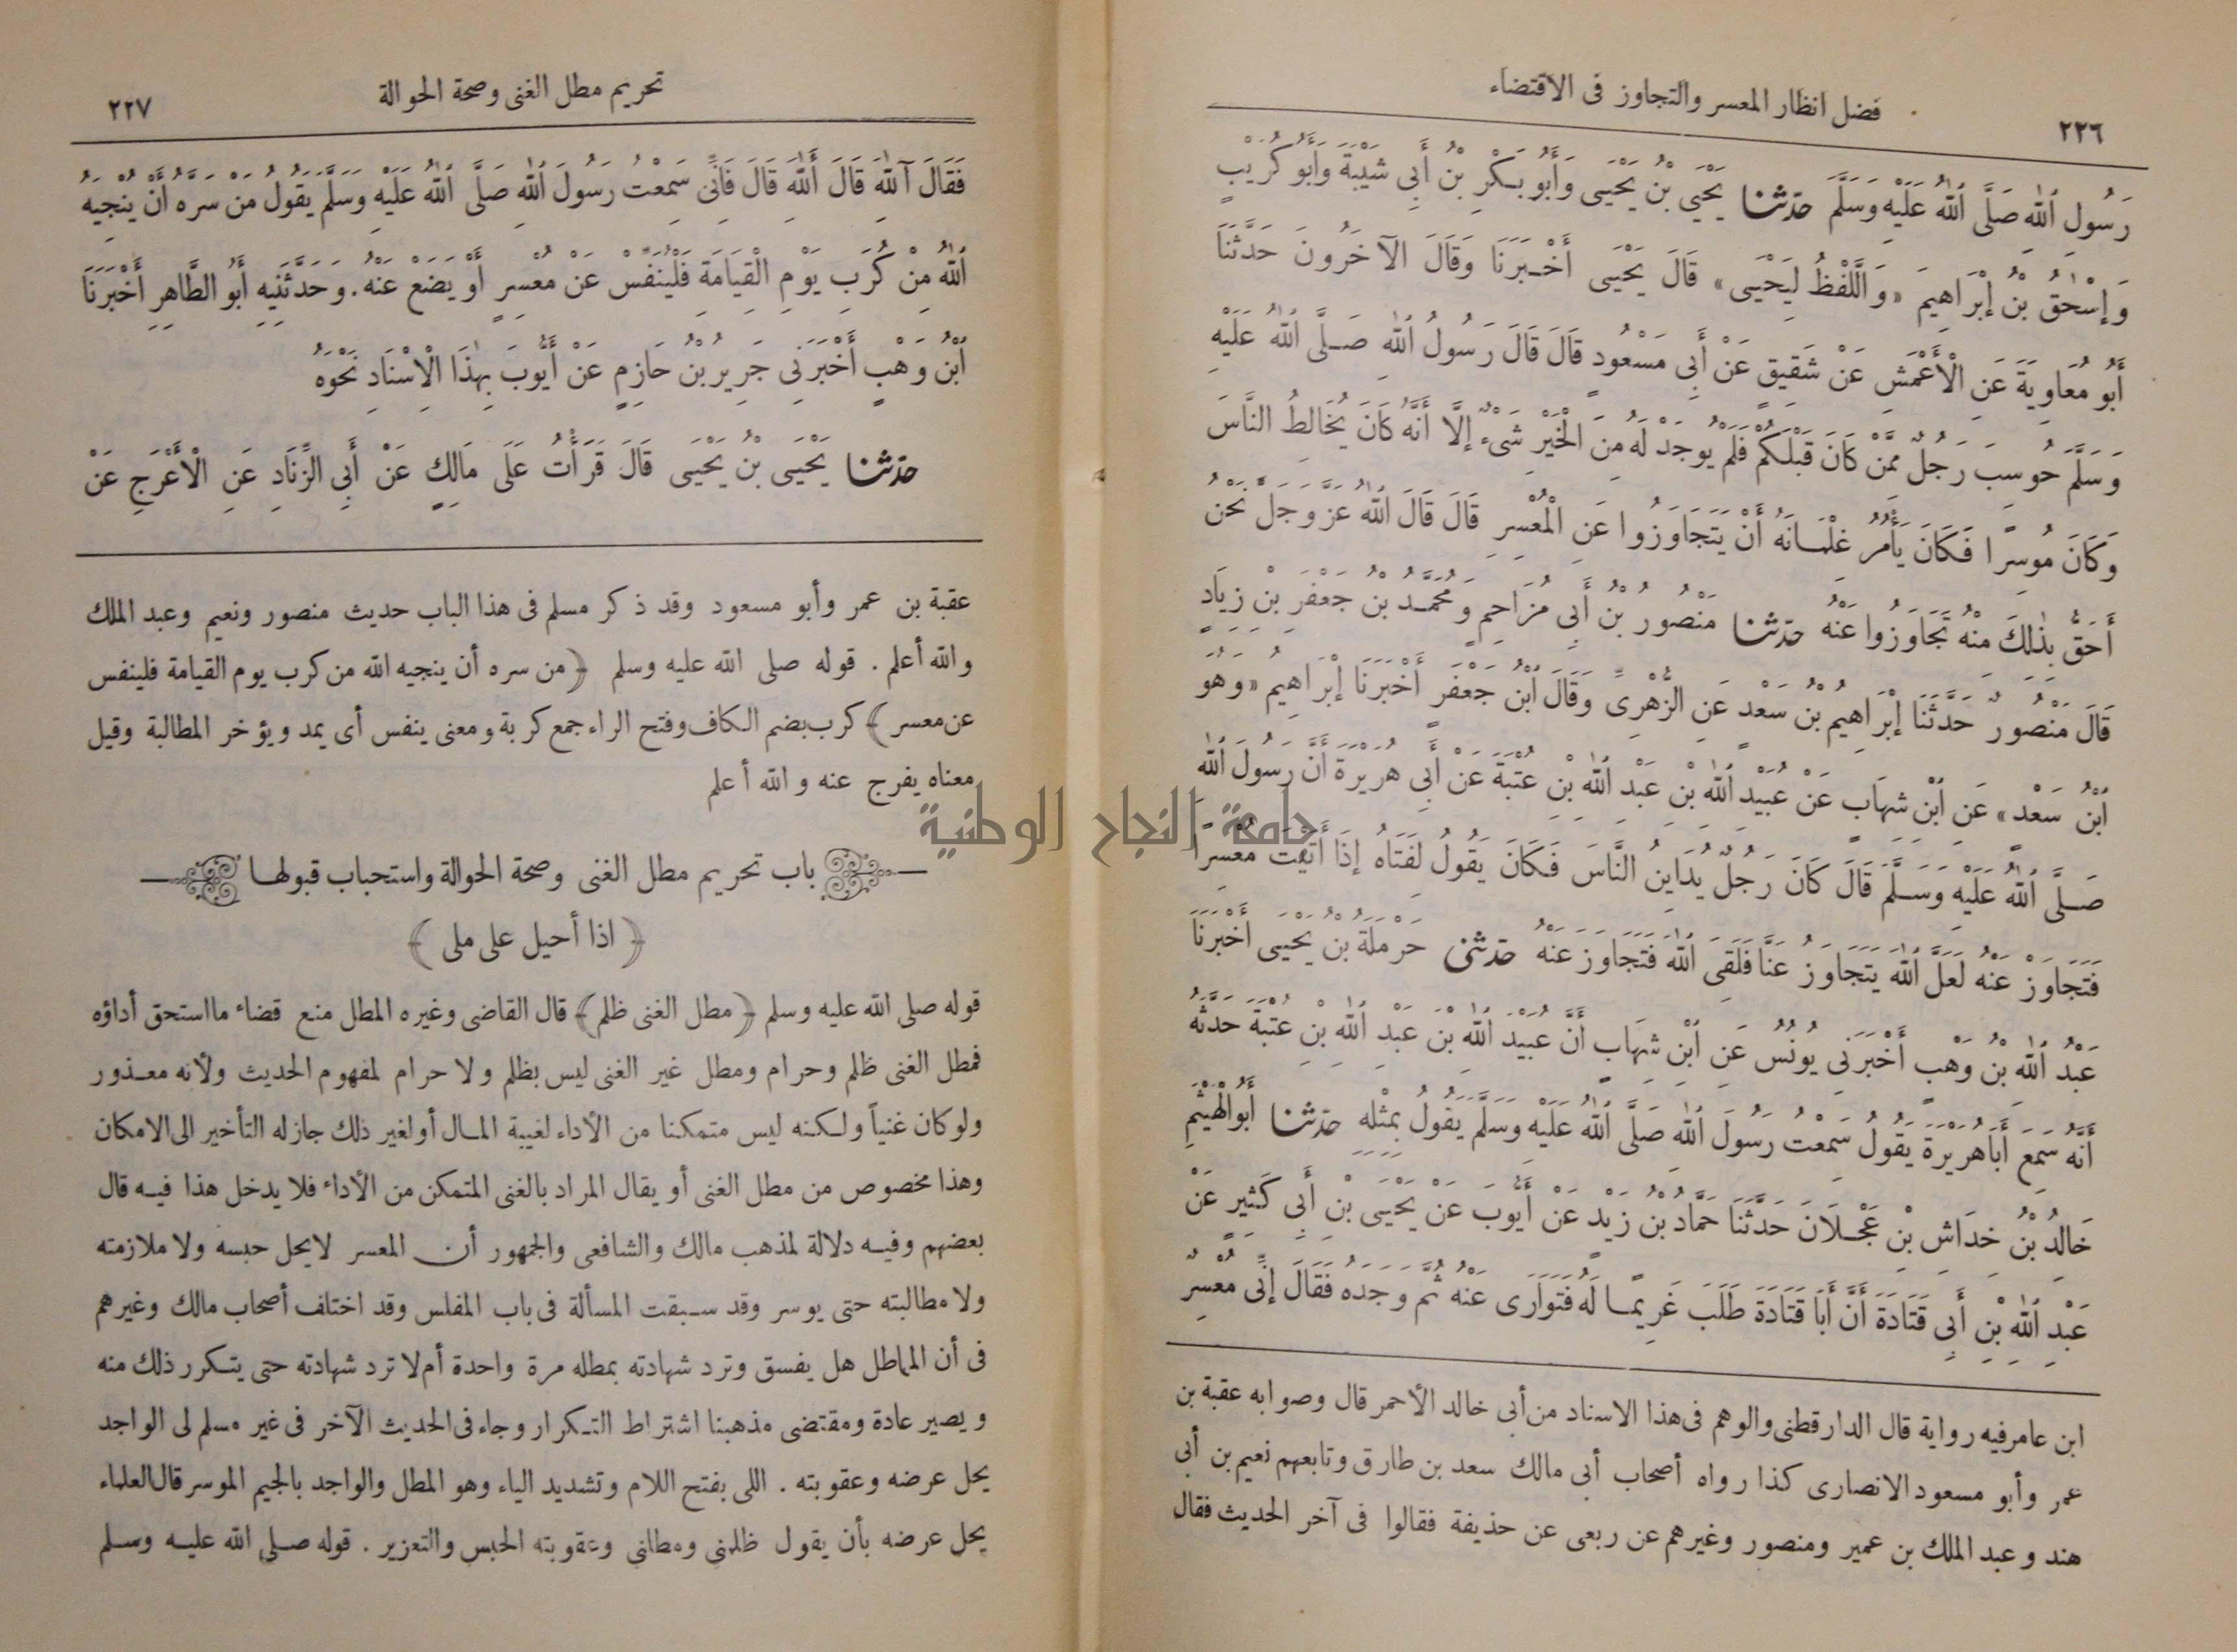 فضل انظار المعسر والتجاوز فى الاقتضاء
٢٢٦
رَسُولِ اللهِ صَلَّى اللهُ عَلَيْهِ وَسَلَّمَ حدثنا يَحْيَى بْنُ يَحْيَى وَأَبُو بَكْرِ بْنُ أَبِي شَيْبَةَ وَأَبُو كُرَيْبٍ
وَإِسْحٰقُ بْنُ إِبْرَاهِيمَ «وَاللَّفْظُ لِيَحْيَى» قَالَ يَحْيَى أَخْبَرَنَا وَقَالَ الآخَرُونَ حَدَّثَنَا
أَبُو مُعَاوِيَةَ عَنِ الْأَعْمَشِ عَنْ شَقِيقٍ عَنْ أَبِي مَسْعُودٍ قَالَ قَالَ رَسُولُ اللهِ صَلَّى اللهُ عَلَيْهِ
وَسَلَّمَ حُوسِبَ رَجُلٌ مِمَّنْ كَانَ قَبْلَكُمْ فَلَمْ يُوجَدْ لَهُ مِنَ الْخَيْرِ شَيْءٌ إِلَّا أَنَّهُ كَانَ يُخَالِطُ النَّاسَ
وَكَانَ مُوسِرًا فَكَانَ يَأْمُرُ غِلْمَانَهُ أَنْ يَتَجَاوَزُوا عَنِ الْمُعْسِرِ قَالَ قَالَ اللهُ عَزَّ وَجَلَّ نَحْنُ
أَحَقُّ بِذٰلِكَ مِنْهُ تَجَاوَزُوا عَنْهُ حدثنا مَنْصُورُ بْنُ أَبِي مُزَاحِمٍ وَمُحَمَّدُ بْنُ جَعْفَرِ بْنِ زِيَادٍ
قَالَ مَنْصُورٌ حَدَّثَنَا إِبْرَاهِيمُ بْنُ سَعْدٍ عَنِ الزُّهْرِىِّ وَقَالَ ابْنُ جَعْفَرٍ أَخْبَرَنَا إِبْرَاهِيمُ «وَهُوَ
ابْنُ سَعْدٍ» عَنِ ابْنِ شِهَابٍ عَنْ عُبَيْدِ اللهِ بْنِ عَبْدِ اللهِ بْنِ عُتْبَةَ عَنْ أَبِي هُرَيْرَةَ أَنَّ رَسُولَ اللهِ
صَلَّى اللهُ عَلَيْهِ وَسَلَّمَ قَالَ كَانَ رَجُلٌ يُدَايِنُ النَّاسَ فَكَانَ يَقُولُ لِفَتَاهُ إِذَا أَتَيْتَ مُعْسِرًا
فَتَجَاوَزْ عَنْهُ لَعَلَّ اللهَ يَتَجَاوَزُ عَنَّا فَلَقِىَ اللهَ فَتَجَاوَزَ عَنْهُ حدثنى حَرْمَلَةُ بْنُ يَحْيَى أَخْبَرَنَا
عَبْدُ اللهِ بْنُ وَهْبٍ أَخْبَرَنِي يُونُسُ عَنِ ابْنِ شِهَابٍ أَنَّ عُبَيْدَ اللهِ بْنَ عَبْدِ اللهِ بْنِ عُتْبَةَ حَدَّثَهُ
أَنَّهُ سَمِعَ أَبَا هُرَيْرَةَ يَقُولُ سَمِعْتُ رَسُولَ اللهِ صَلَّى اللهُ عَلَيْهِ وَسَلَّمَ يَقُولُ بِمِثْلِهِ حدثنا أَبُو الْهَيْثَمِ
خَالِدُ بْنُ خِدَاشِ بْنِ عَجْلَانَ حَدَّثَنَا حَمَّادُ بْنُ زَيْدٍ عَنْ أَيُّوبَ عَنْ يَحْيَى بْنِ أَبِي كَثِيرٍ عَنْ
عَبْدِ اللهِ بْنِ أَبِي قَتَادَةَ أَنَّ أَبَا قَتَادَةَ طَلَبَ غَرِيمًا لَهُ فَتَوَارَى عَنْهُ ثُمَّ وَجَدَهُ فَقَالَ إِنِّى مُعْسِرٌ
ابن عامر فيه رواية قال الدارقطنى والوهم فى هذا الاسناد من أبى خالد الأحمر قال وصوابه عقبة بن
عمر وأبو مسعود الانصارى كذا رواه أصحاب أبى مالك سعد بن طارق وتابعهم نعيم بن أبى
هند وعبد الملك بن عمير ومنصور وغيرهم عن ربعى عن حذيفة فقالوا فى آخر الحديث فقال
تحريم مطل الغنى وصحة الحوالة
٢٢٧
فَقَالَ آللهِ قَالَ أَللهِ قَالَ فَإِنِّى سَمِعْتُ رَسُولَ اللهِ صَلَّى اللهُ عَلَيْهِ وَسَلَّمَ يَقُولُ مَنْ سَرَّهُ أَنْ يُنْجِيَهُ
اللهُ مِنْ كُرَبِ يَوْمِ الْقِيَامَةِ فَلْيُنَفِّسْ عَنْ مُعْسِرٍ أَوْ يَضَعْ عَنْهُ. وَحَدَّثَنِيهِ أَبُو الطَّاهِرِ أَخْبَرَنَا
ابْنُ وَهْبٍ أَخْبَرَنِى جَرِيرُ بْنُ حَازِمٍ عَنْ أَيُّوبَ بِهٰذَا الْإِسْنَادِ نَحْوَهُ
حدثنا يَحْيَى بْنُ يَحْيَى قَالَ قَرَأْتُ عَلَى مَالِكٍ عَنْ أَبِي الزِّنَادِ عَنِ الْأَعْرَجِ عَنْ
عقبة بن عمر وأبو مسعود وقد ذكر مسلم فى هذا الباب حديث منصور ونعيم وعبد الملك
والله أعلم . قوله صلى الله عليه وسلم ﴿من سره أن ينجيه الله من كرب يوم القيامة فلينفس
عن معسر﴾ كرب بضم الكاف وفتح الراء جمع كربة ومعنى ينفس أى يمد ويؤخر المطالبة وقيل
معناه يفرج عنه والله أعلم
جامعة النجاح الوطنية
باب تحريم مطل الغنى وصحة الحوالة واستحباب قبولها
﴿اذا أحيل على ملى﴾
قوله صلى الله عليه وسلم ﴿مطل الغنى ظلم﴾ قال القاضى وغيره المطل منع قضاء ما استحق أداؤه
فمطل الغنى ظلم وحرام ومطل غير الغنى ليس بظلم ولا حرام لمفهوم الحديث ولأنه معذور
ولو كان غنياً ولكنه ليس متمكنا من الأداء لغيبة المال أو لغير ذلك جازله التأخير الى الامكان
وهذا مخصوص من مطل الغنى أو يقال المراد بالغنى المتمكن من الأداء فلا يدخل هذا فيه قال
بعضهم وفيه دلالة لمذهب مالك والشافعى والجمهور أن المعسر لايحل حبسه ولا ملازمته
ولا مطالبته حتى يوسر وقد سبقت المسألة فى باب المفلس وقد اختلف أصحاب مالك وغيرهم
فى أن المماطل هل يفسق وترد شهادته بمطله مرة واحدة أم لا ترد شهادته حتى يتكرر ذلك منه
ويصير عادة ومقتضى مذهبنا اشتراط التكرار وجاء فى الحديث الآخر فى غير مسلم لى الواجد
يحل عرضه وعقوبته . اللى بفتح اللام وتشديد الياء وهو المطل والواجد بالجيم الموسر قال العلماء
يحل عرضه بأن يقول ظلمنى ومطلنى وعقوبته الحبس والتعزير . قوله صلى الله عليه وسلم